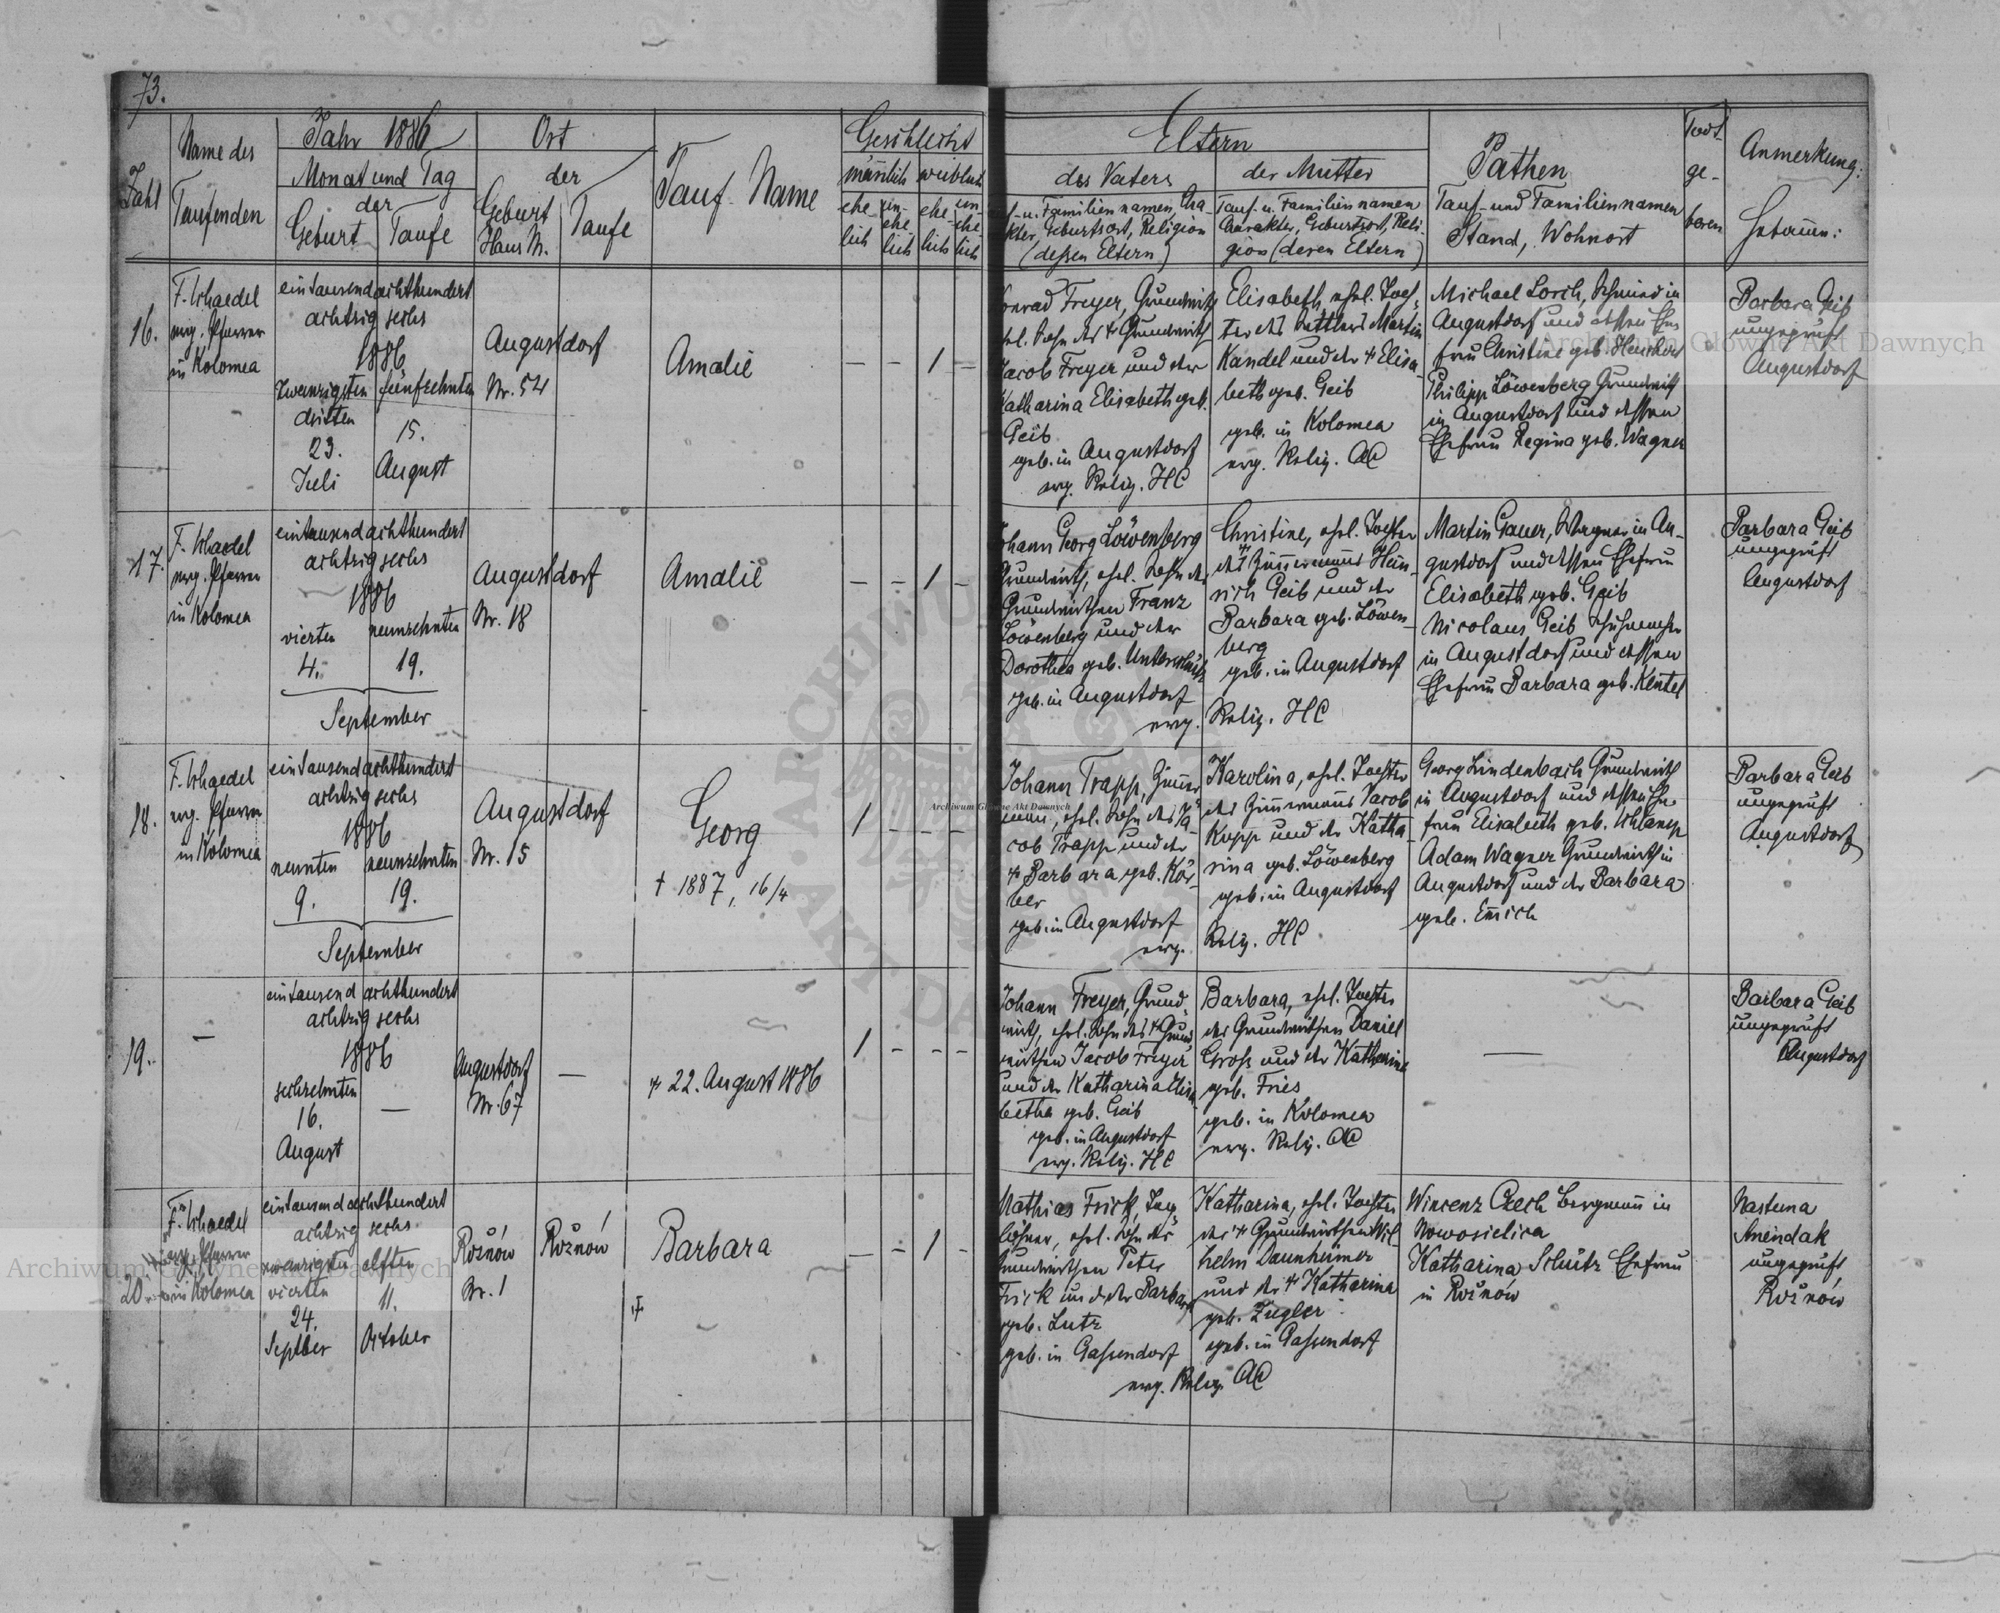 73.
Zahl
Name des
Taufenden
Jahr 1886
Monat und Tag
der
Geburt
Taufe
Ort
der
Geburt
Haus Nr.
Taufe
Tauf-Name
Geschlecht
männlich
weiblich
ehe-
lich
un-
ehe-
lich
ehe-
lich
un-
ehe-
lich
Eltern
des Vaters
Tauf- u. Familiennamen, Cha
rakter, Geburtsort, Religion
(deßen Eltern)
der Mutter
Tauf- u. Familiennamen
Charakter, Geburtsort, Reli-
gion (deren Eltern)
Pathen
Tauf- und Familiennamen
Stand, Wohnort
Todt
ge-
boren
Anmerkung:
Hebamme:
16.
F. Schaedel
evg. Pfarrer
in Kolomea
eintausendachthundert
achtzig sechs
1886
zwanzigsten
dritten
23.
Juli
fünfzehnten
15.
August
Augustdorf
Nr. 54
Amalie
— — 1 —
Konrad Freyer, Grundwirth
ehl. Sohn des † Grundwirth
Jacob Freyer und der
Katharina Elisabeth geb.
Geib
geb. in Augustdorf
evg. Relig. HC
Elisabeth, ehel. Toch-
ter des Martin
Kandel und der † Elisa-
beth geb. Geib
geb. in Kolomea
evg. Relig. AC
Michael Lorch, Schmied in
Augustdorf und dessen Ehe
frau Christine geb.
Philipp Löwenberg Grundwirth
in Augustdorf und dessen
Ehefrau Regina geb. Wagner
Barbara Geib
ungeprüft
Augustdorf
17.
F. Schaedel
evg. Pfarrer
in Kolomea
eintausendachthundert
achtzig sechs
1886
vierten
4.
neunzehnten
19.
September
Augustdorf
Nr. 18
Amalie
— — 1 —
Johann Georg Löwenberg
Grundwirth, ehel. Sohn des
Grundwirthen Franz
Löwenberg und der
Dorothea geb. Unterschütz
geb. in Augustdorf
evg.
Christine, ehel. Tochter
des † Zimmermanns Hein-
rich Geib und der
Barbara geb. Löwen-
berg
geb. in Augustdorf
Relig. HC
Martin Gauer, Wagner in Au-
gustdorf und dessen Ehefrau
Elisabeth geb. Geib
Nicolaus Geib Schuhmacher
in Augustdorf und dessen
Ehefrau Barbara geb. Kentel
Barbara Geib
ungeprüft
Augustdorf
18.
F. Schaedel
evg. Pfarrer
in Kolomea
eintausendachthundert
achtzig sechs
1886
neunten
9.
neunzehnten
19.
September
Augustdorf
Nr. 15
Georg
† 1887, 16/4
1 - - -
Johann Trapp, Zimmer
mann, ehel. Sohn des Ja
cob Trapp und der
† Barbara, geb. Kör-
ber
geb. in Augustdorf
evg.
Karolina, ehel. Tochter
des Zimmermanns Jacob
Kopp und der Katha
rina geb. Löwenberg
geb. in Augustdorf
Relig. HC
Georg Lindenbach Grundwirth
in Augustdorf und dessen Ehe
frau Elisabeth geb. Schlamp
Adam Wagner Grundwirth in
Augustdorf und der Barbara
geb. Emich
Barbara Geib
ungeprüft
Augustdorf
19.
—
eintausend achthundert
achtzig sechs
1886
sechzehnten
16.
August
—
Augustdorf
Nr. 67
—
† 22. August 1886
1 - - -
Johann Freyer, Grund-
wirth, ehel. Sohn des † Grund
wirthen Jacob Freyer
und der Katharina Elisa
betha geb. Geib
geb. in Augustdorf
evg. Relig. HC
Barbara, ehel. Tochter
des Grundwirthen Daniel
Groß und der Katharina
geb. Fries
geb. in Kolomea
evg. Relig. AC
—
Barbara Geib
ungeprüft
Augustdorf
20.
F. Schaedel
evg. Pfarrer
in Kolomea
eintausendachthundert
achtzig sechs
zwanzigsten
vierten
24.
Septber
elften
11.
October
Rožnów
Nr. 1
Rožnów
Barbara
— - 1 -
Mathias Frick, Tag
löhner, ehel. Sohn des
Grundwirthen Peter
Frick und der Barbara
geb. Lutz
geb. in Gaßendorf
evg. Relig. AC
Katharina, ehel. Tochter
des † Grundwirthen Wil-
helm Daunheimer
und der † Katharina
geb. Ziegler
geb. in Gaßendorf
Wincenz Czech Bergmann in
Nowosielica
Katharina Schütz Ehefrau
in Rožnów
Nastuna
Amindak
ungeprüft
Rožnów
Archiwum Główne Akt Dawnych
Archiwum Główne Akt Dawnych
Archiwum Główne Akt Dawnych